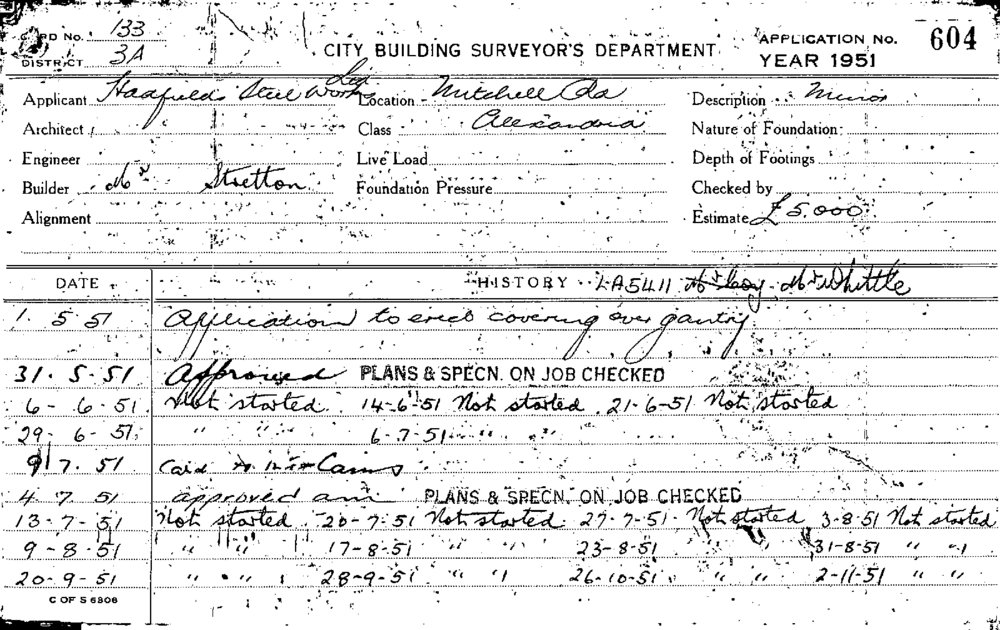 CARD No. 133
DISTRICT 3A
CITY BUILDING SURVEYOR'S DEPARTMENT
APPLICATION No. 604
YEAR 1951
Applicant Hadfields Steel Works Ltd
Location Mitchell Rd
Description Minor
Architect
Class Alexandria
Nature of Foundation
Engineer
Live Load
Depth of Footings
Builder Mr Stretton
Foundation Pressure
Checked by
Alignment
Estimate £5.000
DATE HISTORY LA5411 Mr Whittle
1 5 51 Application to erect covering over gantry
31. 5. 51 Approved PLANS & SPECN. ON JOB CHECKED
6 - 6. 51 Not started. 14-6-51 Not started. 21-6-51 Not started
29. 6. 51. " " 6-7-51 " "
9 7. 51 Card to Mr Cairns
4 7 51 approved am PLANS & SPECN. ON JOB CHECKED
13-7-51 Not started 20-7-51 Not started 27-7-51 Not started 3-8-51 Not started
9-8-51 " " 17-8-51 " " 23-8-51 " " 31-8-51 " "
20-9-51 " " 28-9-51 " " 26-10-51 " " 2-11-51 " "
C OF S 6306